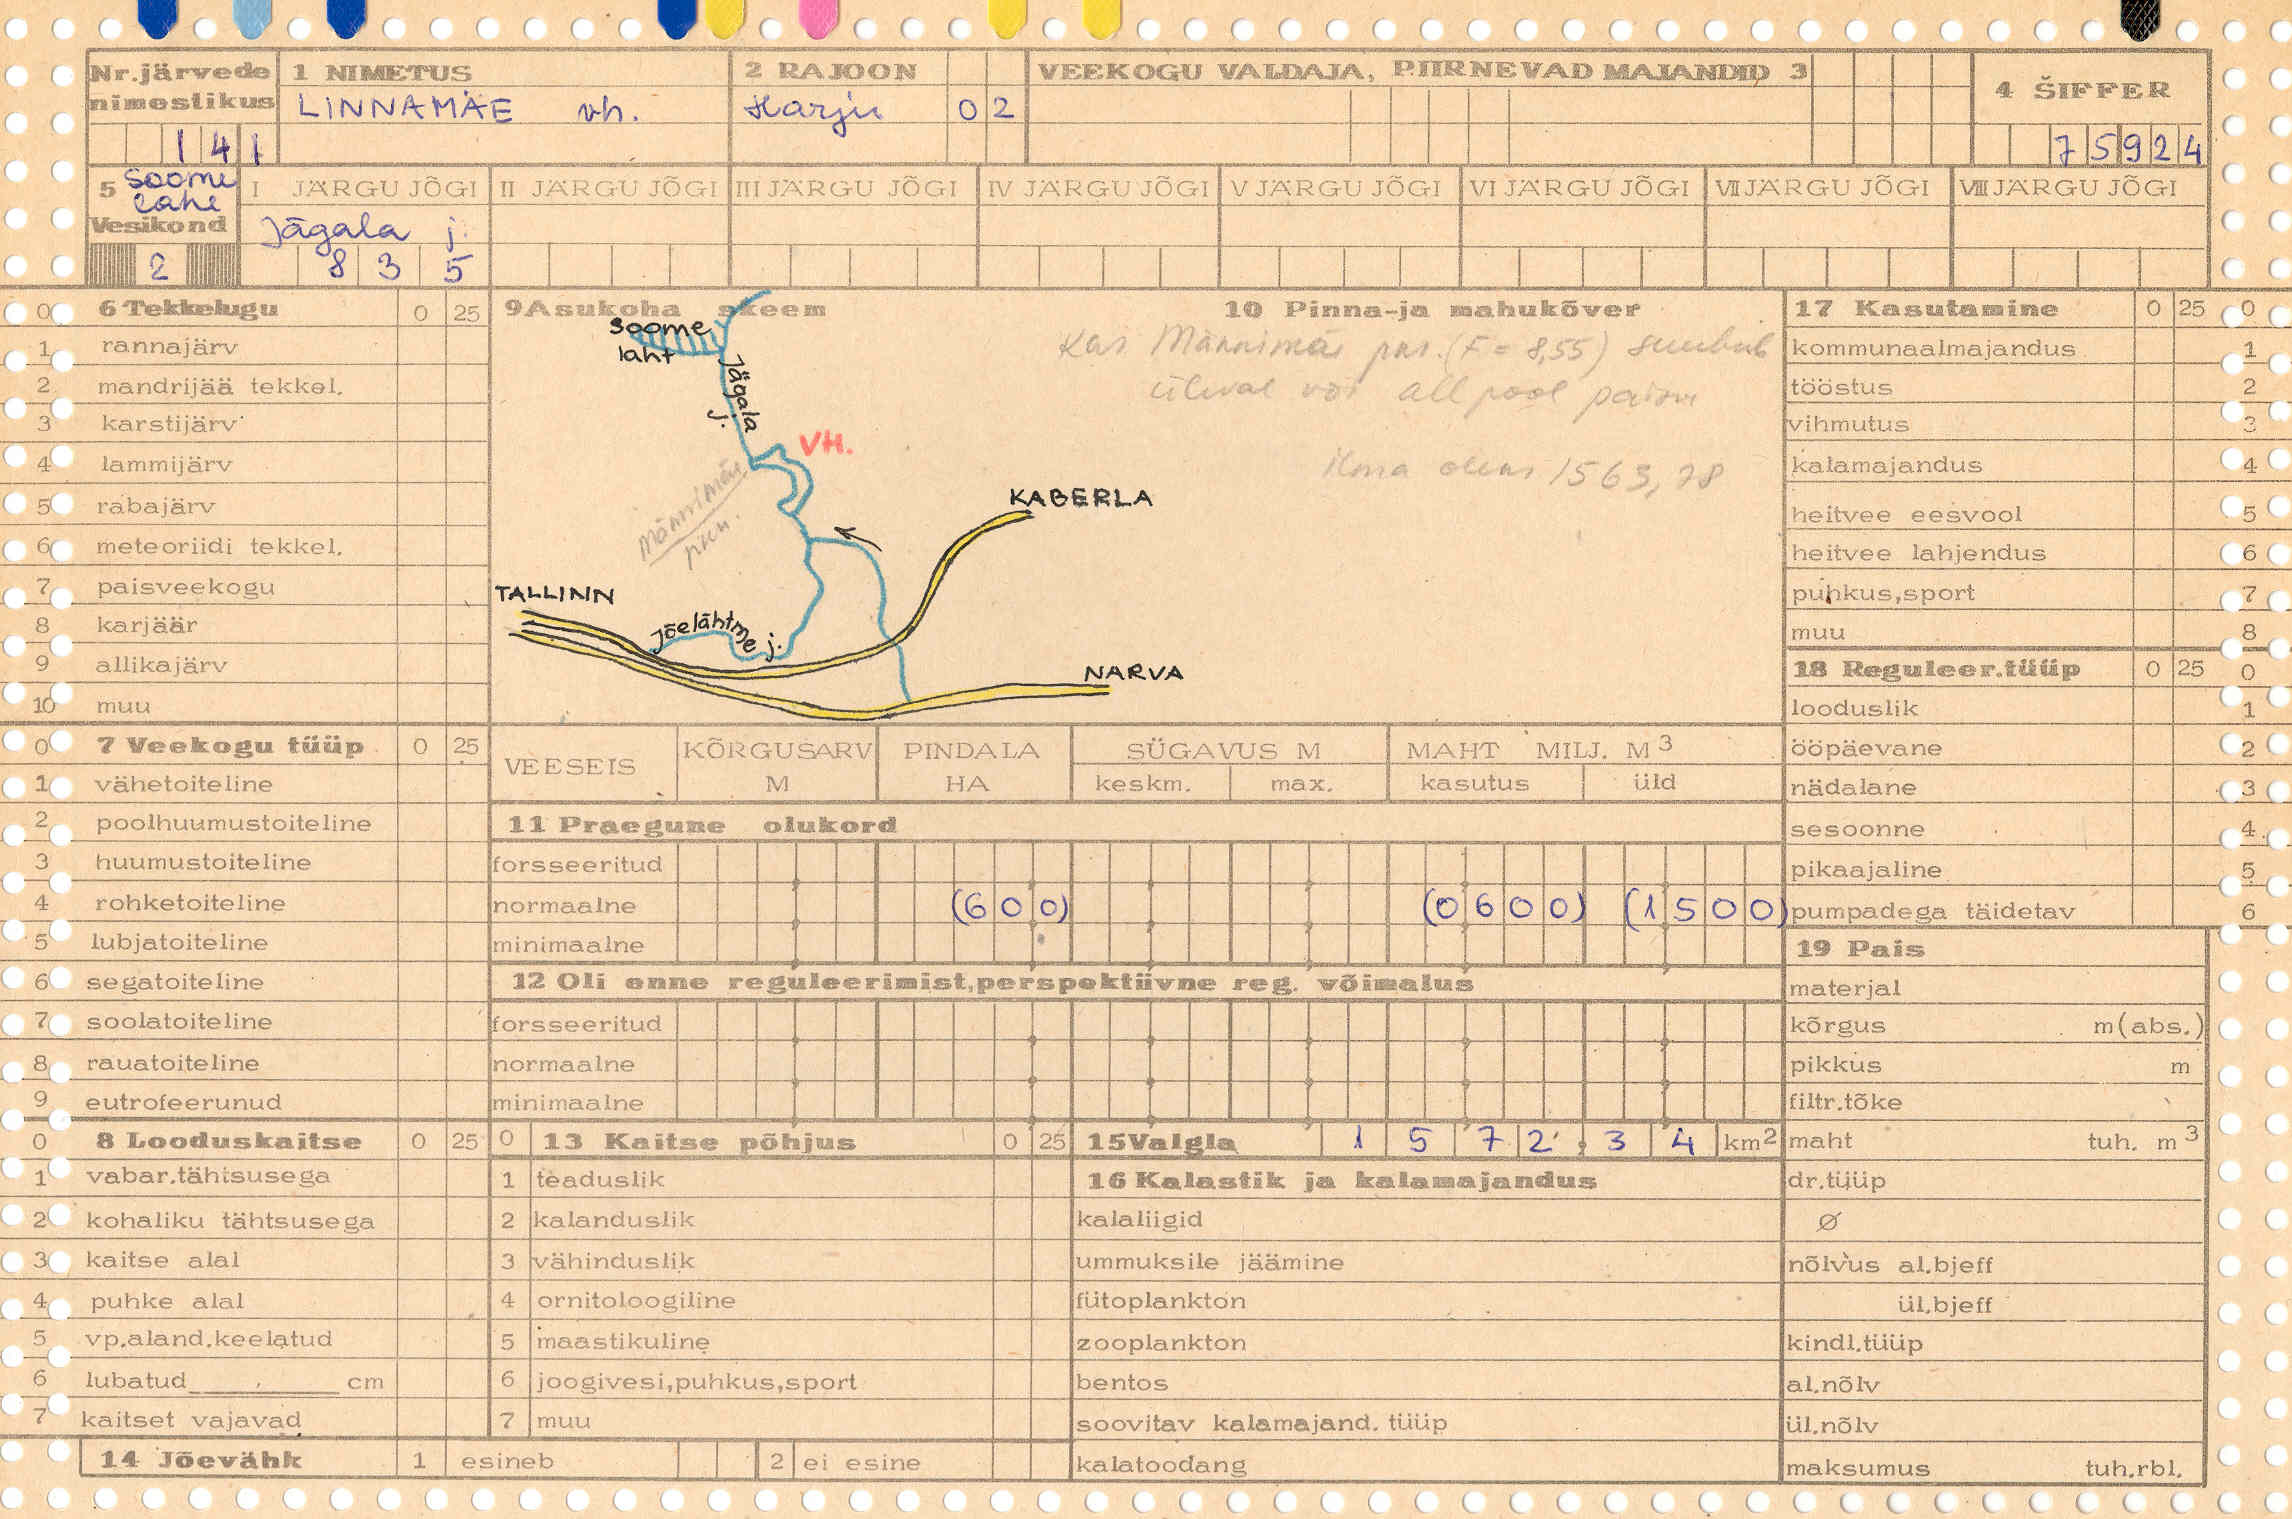 Nr.järvede nimestikus
141
1 NIMETUS
LINNAMÄE vh.
2 RAJOON
Harju 02
VEEKOGU VALDAJA, PIIRNEVAD MAJANDID 3
4 ŠIFFER
75924
5 Soome lahe
Vesikond
2
I JÄRGU JÕGI
Jägala j.
835
II JÄRGU JÕGI
III JÄRGU JÕGI
IV JÄRGU JÕGI
V JÄRGU JÕGI
VI JÄRGU JÕGI
VII JÄRGU JÕGI
VIII JÄRGU JÕGI
0 6 Tekkelugu 0 25
1 rannajärv
2 mandrijää tekkel.
3 karstijärv
4 lammijärv
5 rabajärv
6 meteoriidi tekkel.
7 paisveekogu
8 karjäär
9 allikajärv
10 muu
0 7 Veekogu tüüp 0 25
1 vähetoiteline
2 poolhuumustoiteline
3 huumustoiteline
4 rohketoiteline
5 lubjatoiteline
6 segatoiteline
7 soolatoiteline
8 rauatoiteline
9 eutrofeerunud
0 8 Looduskaitse 0 25
1 vabar.tähtsusega
2 kohaliku tähtsusega
3 kaitse alal
4 puhke alal
5 vp.aland.keelatud
6 lubatud cm
7 kaitset vajavad
14 Jõevähk 1 esineb 2 ei esine
9 Asukoha skeem
Soome laht
Jägala j.
VH.
Männimäe
KABERLA
TALLINN
Jõelähtme j.
NARVA
10 Pinna-ja mahukõver
Kas Männimäe pkr. (F = 8,55) suubub
üleval või allpool paisu
ilma oleks 1563,78
VEESEIS
KÕRGUSARV M
PINDALA HA
SÜGAVUS M
keskm. max.
MAHT MILJ. M3
kasutus üld
11 Praegune olukord
forsseeritud
normaalne (600) (0600) (1500)
minimaalne
12 Oli enne reguleerimist,perspektiivne reg. võimalus
forsseeritud
normaalne
minimaalne
0 13 Kaitse põhjus 0 25
1 teaduslik
2 kalanduslik
3 vähinduslik
4 ornitoloogiline
5 maastikuline
6 joogivesi,puhkus,sport
7 muu
15 Valgla 1572,34 km2
16 Kalastik ja kalamajandus
kalaliigid
ummuksile jäämine
fütoplankton
zooplankton
bentos
soovitav kalamajand. tüüp
kalatoodang
17 Kasutamine 0 25 0
kommunaalmajandus 1
tööstus 2
vihmutus 3
kalamajandus 4
heitvee eesvool 5
heitvee lahjendus 6
puhkus,sport 7
muu 8
18 Reguleer.tüüp 0 25 0
looduslik 1
ööpäevane 2
nädalane 3
sesoonne 4
pikaajaline 5
pumpadega täidetav 6
19 Pais
materjal
kõrgus m(abs.)
pikkus m
filtr.tõke
maht tuh. m3
dr.tüüp
Ø
nõlvus al.bjeff
ül.bjeff
kindl.tüüp
al.nõlv
ül.nõlv
maksumus tuh.rbl.